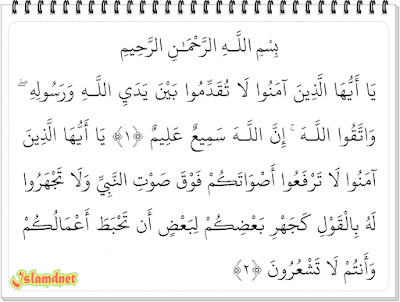 بِسْمِ اللَّـهِ الرَّحْمَـٰنِ الرَّحِيمِ
يَا أَيُّهَا الَّذِينَ آمَنُوا لَا تُقَدِّمُوا بَيْنَ يَدَيِ اللَّـهِ وَرَسُولِهِ ۖ
وَاتَّقُوا اللَّـهَ ۚ إِنَّ اللَّـهَ سَمِيعٌ عَلِيمٌ ﴿١﴾ يَا أَيُّهَا الَّذِينَ
آمَنُوا لَا تَرْفَعُوا أَصْوَاتَكُمْ فَوْقَ صَوْتِ النَّبِيِّ وَلَا تَجْهَرُوا
لَهُ بِالْقَوْلِ كَجَهْرِ بَعْضِكُمْ لِبَعْضٍ أَن تَحْبَطَ أَعْمَالُكُمْ
وَأَنتُمْ لَا تَشْعُرُونَ ﴿٢﴾
Islamdnet